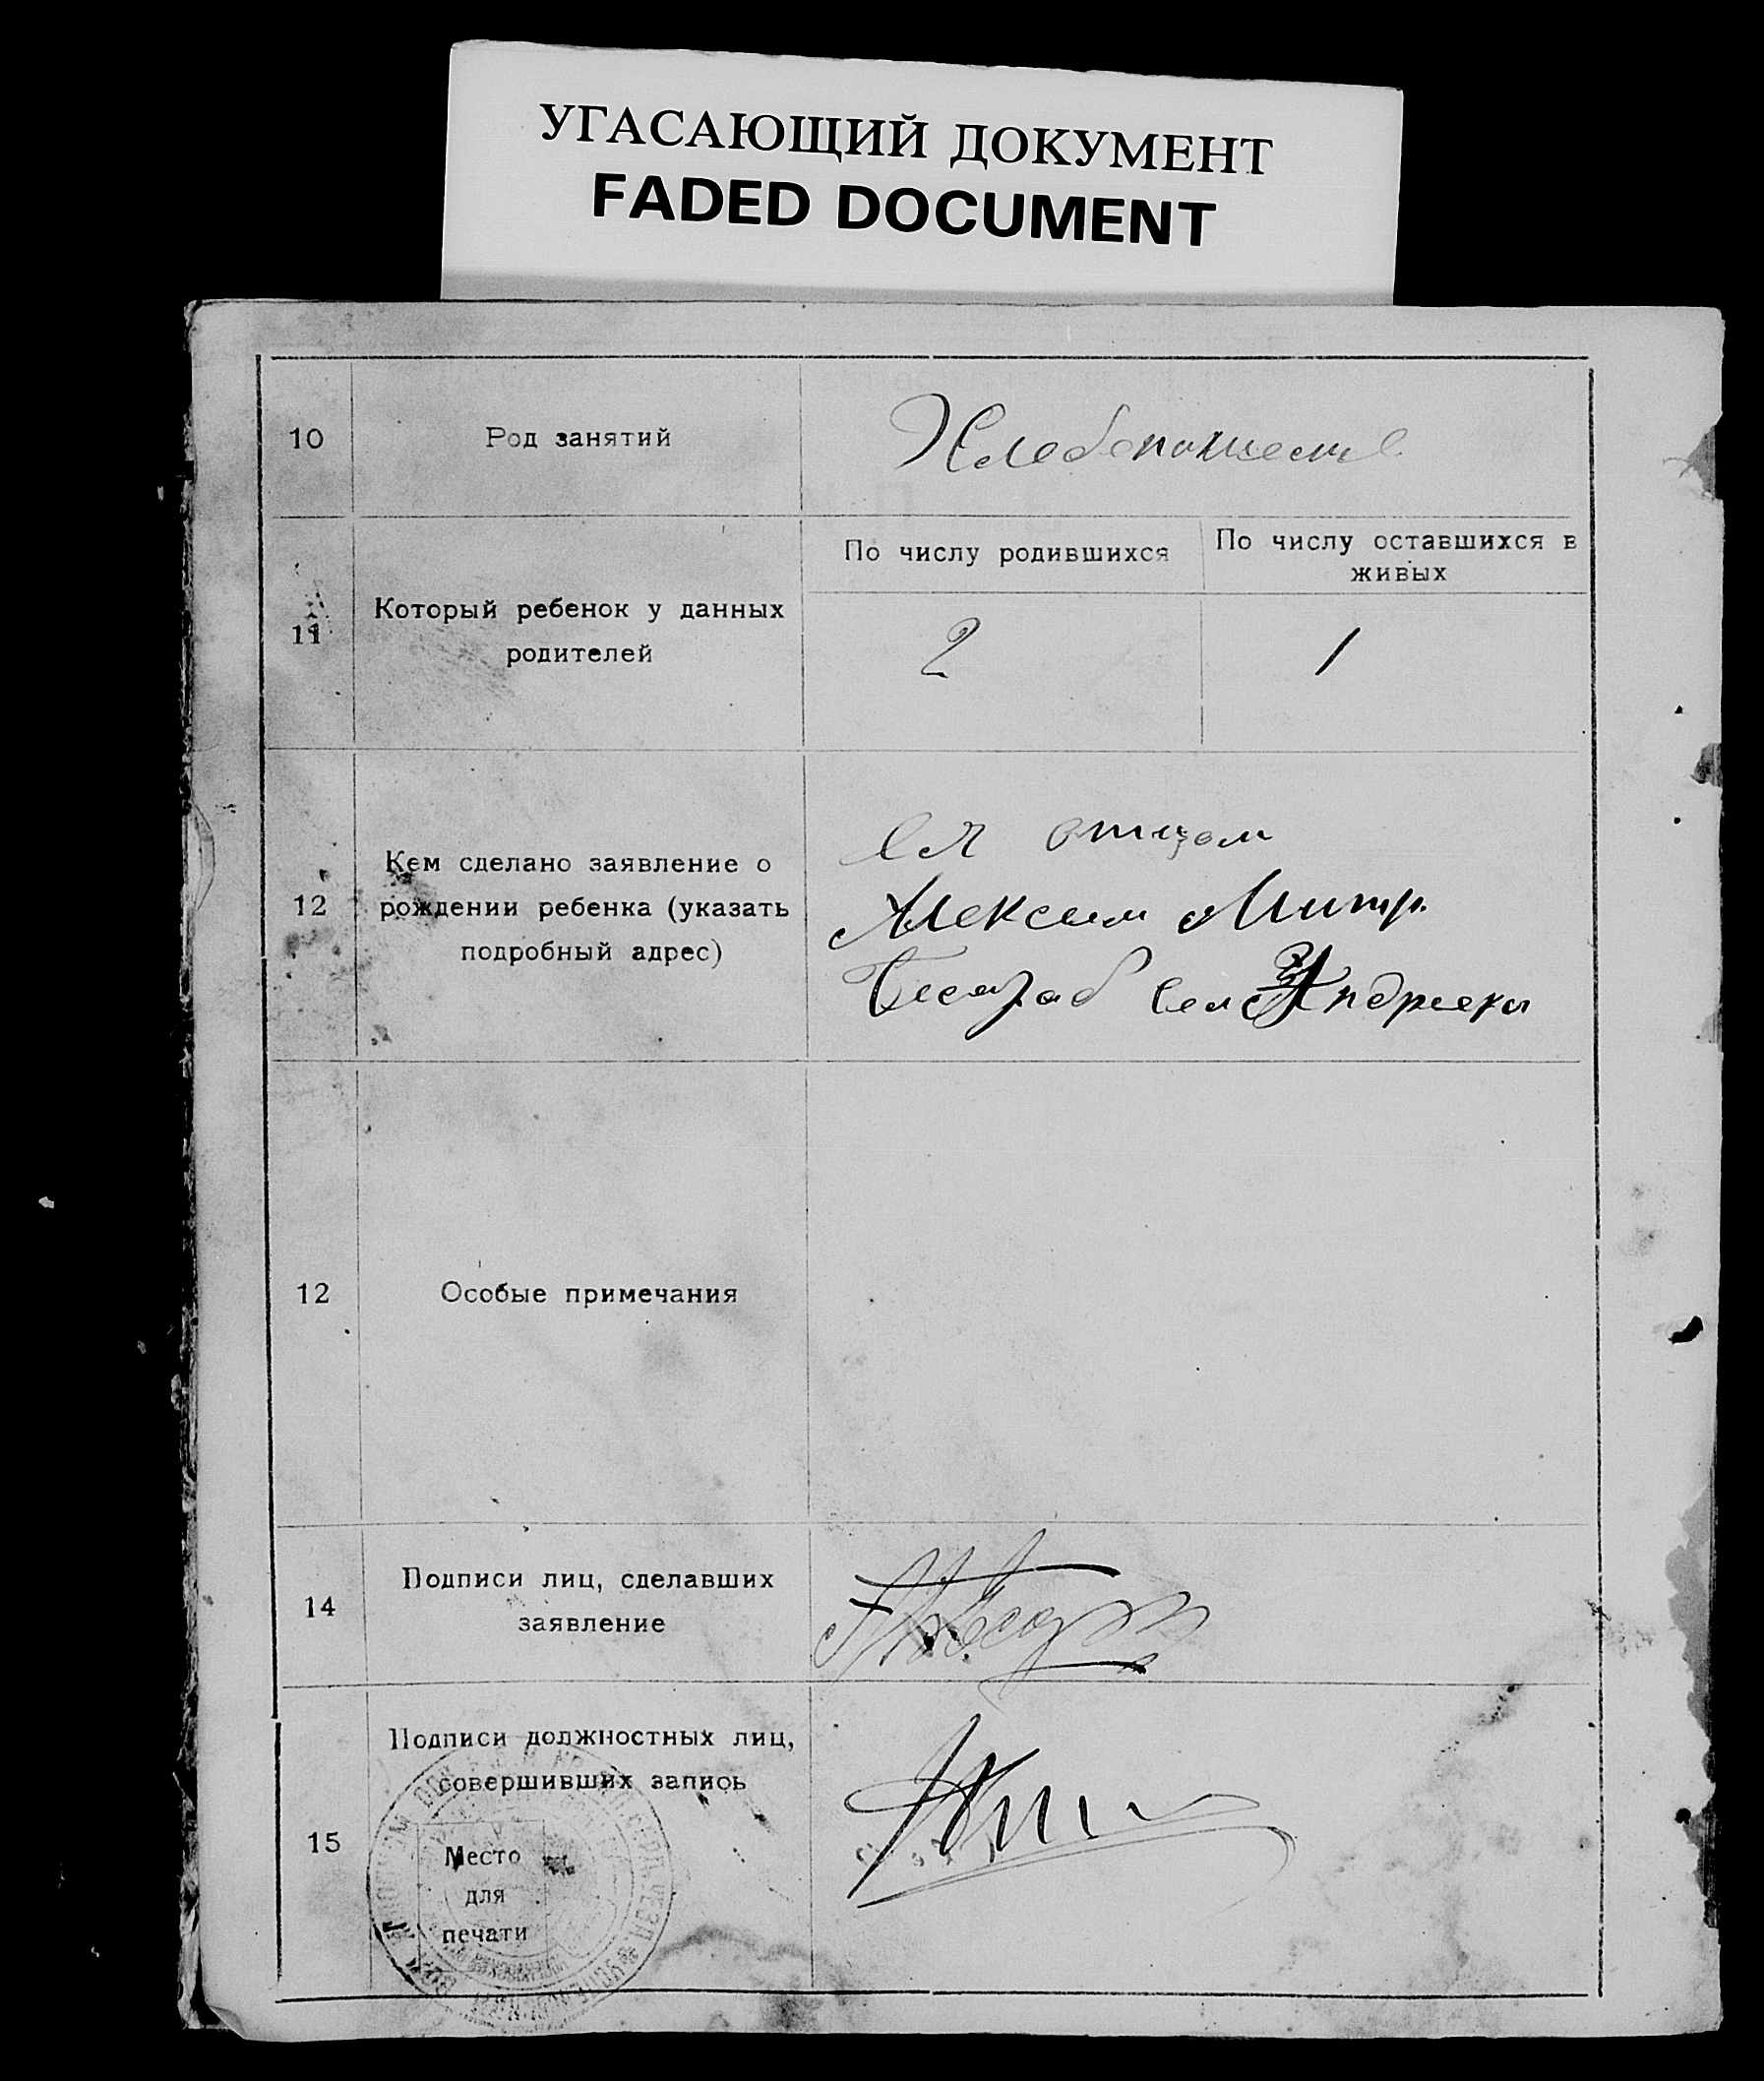 УГАСАЮЩИЙ ДОКУМЕНТ
FADED DOCUMENT
10
Род занятий
Хлебопашест
11
Который ребенок у данных
родителей
По числу родившихся
2
По числу оставшихся в
живых
1
12
Кем сделано заявление о
рождении ребенка (указать
подробный адрес)
Ея отцом
Алексеем Митр.
Бесараб Андреевки
12
Особые примечания
14
Подписи лиц, сделавших
заявление
15
Подписи должностных лиц,
совершивших запись
Место
для
печати